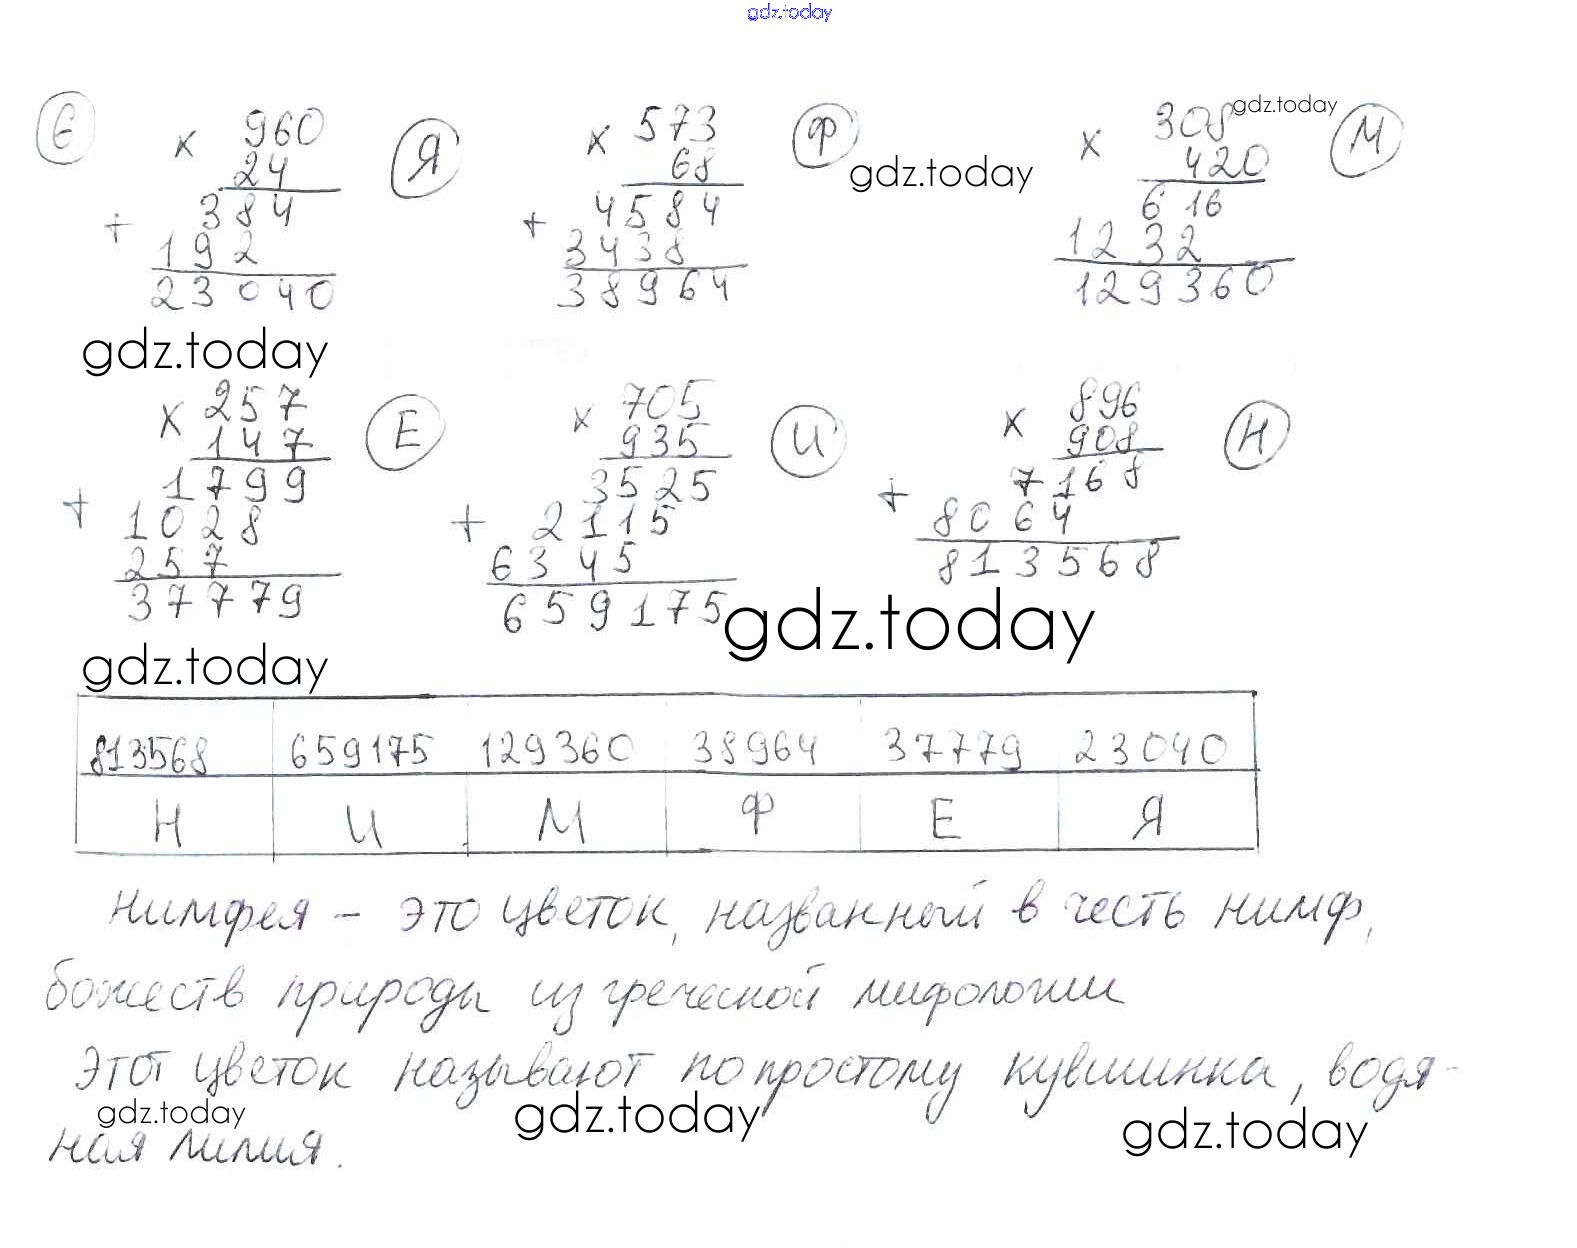 gdz.today
6
× 960
24
+ 384
192
23040
Я
× 573
68
+ 4584
3438
38964
Ф
gdz.today
× 308
420
616
1232
129360
gdz.today
М
gdz.today
× 257
147
1799
+ 1028
257
37779
Е
× 705
935
3525
+ 2115
6345
659175
И
× 896
908
+ 7168
8064
813568
Н
gdz.today
gdz.today
813568 659175 129360 38964 37779 23040
Н И М Ф Е Я
Нимфея – это цветок, названный в честь нимф,
божеств природы из греческой мифологии
Этот цветок называют по простому кувшинка, водя-
gdz.today gdz.today gdz.today
ная лилия.